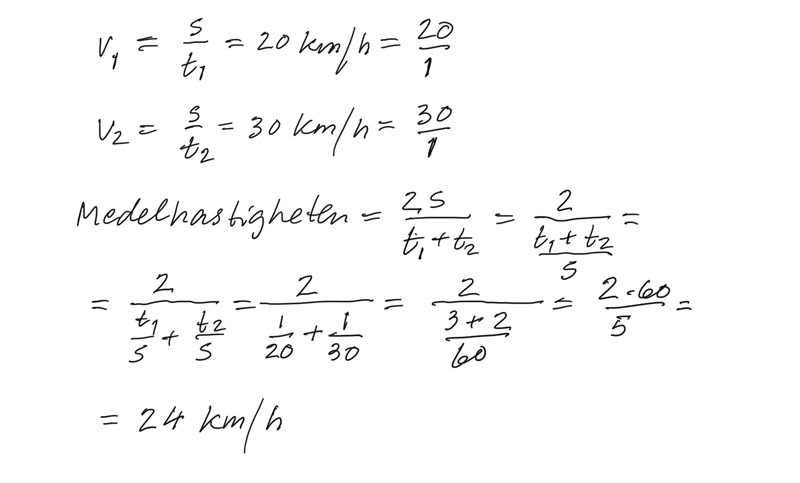 v₁ = s/t₁ = 20 km/h = 20/1
v₂ = s/t₂ = 30 km/h = 30/1
Medelhastigheten = 2s/(t₁ + t₂) = 2/((t₁ + t₂)/s) =
= 2/(t₁/s + t₂/s) = 2/(1/20 + 1/30) = 2/((3 + 2)/60) = 2·60/5 =
= 24 km/h